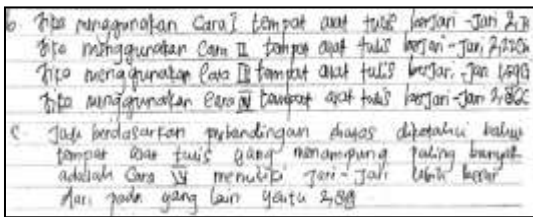 b. Jika menggunakan Cara I tempat alat tulis berjari-Jari
Jika menggunakan Cara II tempat alat tulis berjari-Jari
Jika menggunakan Cara III tempat alat tulis berjari-Jari
Jika menggunakan Cara IV tempat alat tulis berjari-Jari
c. Jadi berdasarkan perbandingan diatas diketahui bahwa
tempat alat tulis yang menampung paling banyak
adalah Cara IV memiliki jari-jari lebih besar
dari pada yang lain yaitu